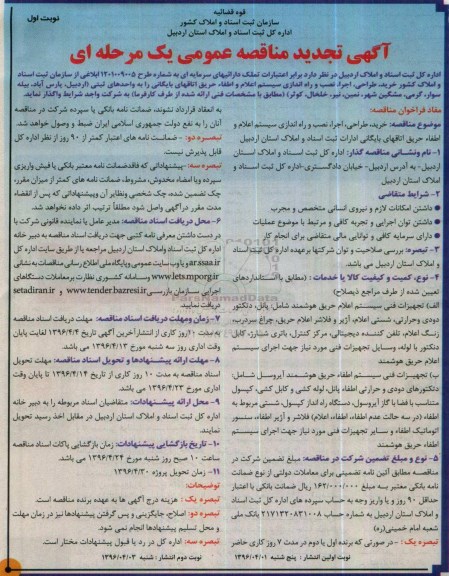 قوه قضائیه
سازمان ثبت اسناد و املاک کشور
اداره کل ثبت اسناد و املاک استان اردبیل
نوبت اول
آگهی تجدید مناقصه عمومی یک مرحله ای
اداره کل ثبت اسناد و املاک اردبیل در نظر دارد برابر اعتبارات تملک دارائیهای سرمایه ای به شماره طرح ۱۲۰۱۰۰۹۰۰۵ ابلاغی از سازمان ثبت اسناد
و املاک کشور خرید، طراحی، اجرا، نصب و راه اندازی سیستم اعلام و اطفاء حریق اتاقهای بایگانی را به واحدهای ثبتی (اردبیل، پارس آباد، بیله
سوار، گرمی، مشگین شهر، نمین، نیر، خلخال، کوثر) (مطابق با مشخصات فنی ارائه شده از طرف کارفرما) به شرکت واجد شرایط واگذار نماید.
مفاد فراخوان مناقصه:
موضوع مناقصه: خرید، طراحی، اجرا، نصب و راه اندازی سیستم اعلام و
اطفاء حریق اتاقهای بایگانی ادارات ثبت اسناد و املاک استان اردبیل
۱- نام ونشانی مناقصه گذار: اداره کل ثبت اسناد و املاک استان
اردبیل - به آدرس اردبیل- خیابان دادگستری-اداره کل ثبت اسناد و
املاک استان اردبیل
۲- شرایط متقاضی
● داشتن امکانات لازم و نیروی انسانی متخصص و مجرب
● داشتن توان اجرایی و تجربه کافی و مرتبط با موضوع عملیات
● دارای سرمایه کافی و توانایی مالی متقاضی برای انجام کار
۳- تبصره: بررسی صلاحیت و توان شرکتها برعهده اداره کل ثبت اسناد
و املاک استان اردبیل می باشد.
۴- نوع، کمیت و کیفیت کالا یا خدمات : (مطابق با استانداردهای
تعیین شده از طرف مراجع ذیصلاح)
الف) تجهیزات فنی سیستم اعلام حریق هوشمند شامل: پانل، دتکتور
دودی وحرارتی، شستی اعلام، آژیر و فلاشر اعلام حریق، چراغ سردرب،
زنگ اعلام، تلفن کننده دیجیتالی، مرکز کنترل، باتری شارژر، کابل
دتکتور با لوله، وسایل تجهیزات فنی مورد نیاز جهت اجرای سیستم
اعلام حریق هوشمند
ب) تجهیزات فنی سیستم اطفاء حریق هوشمند آیروسل شامل:
دتکتورهای دودی و حرارتی اطفاء پانل، لوله کشی و کابل کشی، کپسول
متناسب با فضا با گاز آیروسول، دستگاه راه انداز کپسول، شستی مربوط به
اطفاء (در سه حالت عدم اطفاء، اطفاء، اعلام) فلاشر و آژیر اطفاء، سنسور
اتوماتیک اطفاء و سایر تجهیزات فنی مورد نیاز جهت اجرای سیستم
اطفاء حریق هوشمند
۵- نوع و مبلغ تضمین شرکت در مناقصه: مبلغ تضمین شرکت در
مناقصه مطابق آئین نامه تضمینی برای معاملات دولتی از نوع ضمانت
نامه بانکی معتبر به مبلغ ۱۶۲/۰۰۰/۰۰۰ ریال ضمانت بانکی با اعتبار
حداقل ۹۰ روز و یا واریز وجه به حساب سپرده های اداره کل ثبت اسناد
و املاک استان اردبیل به شماره حساب ۲۱۷۱۳۲۰۸۳۱۰۰۸ بانک ملی
شعبه امام خمینی(ره)
تبصره یک - در صورتی که برنده اول یا دوم در مدت ۷ روز کاری حاضر
به انعقاد قرارداد نشوند، ضمانت نامه بانکی یا سپرده شرکت در مناقصه
آنان را به نفع دولت جمهوری اسلامی ایران ضبط و وصول خواهد شد.
تبصره دو - ضمانت نامه های اعتبار کمتر از ۹۰ روز از نظر اداره کل
قابل پذیرش نیست.
تبصره سه- پیشنهاداتی که فاقد ضمانت نامه معتبر بانکی یا فیش واریزی
سپرده ویا امضاء مخدوش، مشروط، ضمانت نامه های کمتر از میزان مقرر،
چک تضمین شده، چک شخصی ونظایر آن وپیشنهاداتی که پس از انقضاء
مدت مقرر در آگهی واصل شود مطلقا ترتیب اثر داده نخواهد شد.
۶- محل دریافت اسناد مناقصه: مدیر عامل یا نماینده قانونی شرکت با
در دست داشتن معرفی نامه کتبی جهت دریافت اسناد مناقصه به دبیر خانه
اداره کل ثبت اسناد واملاک استان اردبیل مراجعه یا از طریق سایت اداره کل
ar.ssaa.ir و یا وب سایت عمومی وپایگاه ملی اطلاع رسانی مناقصات به نشانی
www.lets.mporg.ir وسامانه کشوری نظارت بر معاملات دستگاهای
اجرایی سازمان بازرسی www.tender.bazresi.ir و setadiran.ir
دریافت نمایید.
۷- زمان ومهلت دریافت اسناد مناقصه: مهلت دریافت اسناد مناقصه
به مدت ۱۰ روز کاری از انتشار آخرین آگهی تاریخ ۱۳۹۶/۴/۴ لغایت پایان
وقت اداری روز سه شنبه مورخ ۱۳۹۶/۴/۱۳ می باشد.
۸- مهلت ارائه پیشنهادها و تحویل اسناد مناقصه: مهلت تحویل
اسناد مناقصه به مدت ۱۰ روز کاری از تاریخ ۱۳۹۶/۴/۱۴ تا پایان وقت
اداری مورخ ۱۳۹۶/۴/۲۳ می باشد.
۹- محل ارائه پیشنهادات: متقاضیان اسناد مربوطه را به دبیر خانه
اداره کل ثبت اسناد و املاک استان اردبیل در مقابل اخذ رسید تحویل
نمایند.
۱۰- تاریخ بازگشایی پیشنهادات: زمان بازگشایی پاکات اسناد مناقصه
ساعت ۱۰ صبح روز شنبه مورخ ۱۳۹۶/۴/۲۴ می باشد.
۱۱- زمان تحویل پروژه ۱۳۹۶/۴/۳۰
توضیحات:
تبصره یک : هزینه درج آگهی ها به عهده برنده مناقصه است.
تبصره دو: اصلاح، جایگزینی و پس گرفتن پیشنهادها نیز در زمان مهلت
و محل تسلیم پیشنهادها انجام نمی شود.
تبصره سه: اداره کل در رد یا قبول پیشنهادات مختار است.
نوبت اولین انتشار : پنج شنبه ۱۳۹۶/۰۴/۰۱
نوبت دوم انتشار : شنبه ۱۳۹۶/۰۴/۰۳
ParsNamadData